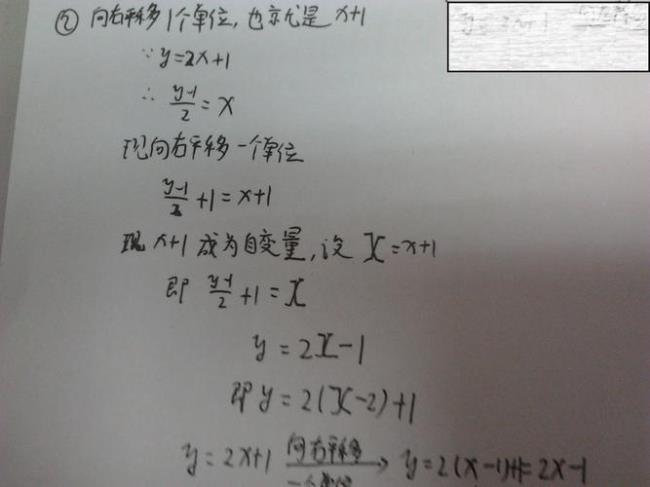 ② 向右平移1个单位,也就是 x+1
∵ y=2x+1
∴ (y-1)/2 = x
现向右平移一个单位
(y-1)/2 +1 = x+1
现 x+1 成为自变量,设 X=x+1
即 (y-1)/2 +1 = X
y = 2X-1
即 y = 2(X-2)+1
y=2x+1 向右平移 一个单位 → y=2(x-1)+1=2x-1